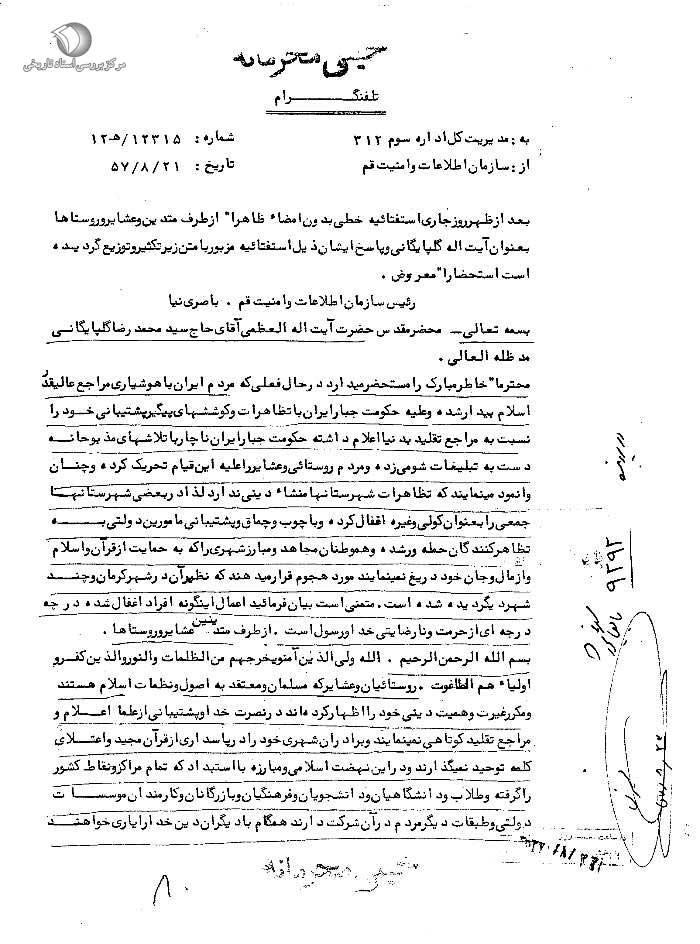 مرکز بررسی اسناد تاریخی
خیلی محرمانه
تلفنگرام
به: مدیریت کل اداره سوم ۳۱۲ شماره: ۱۲۳۱۵/ه‍ـ۱۲
از: سازمان اطلاعات وامنیت قم تاریخ: ۵۷/۸/۲۱
بعد ازظهر روزجاری استفتائیه خطی بدون امضاء ظاهرا" ازطرف متدین وعشایروروستاها
بعنوان آیت اله گلپایگانی وپاسخ ایشان ذیل استفتائیه مزبوربا متن زیر تکثیروتوزیع گردیده
است استحضارا" معروض .
رئیس سازمان اطلاعات وامنیت قم . باصری نیا
بسمه تعالی ـ محضرمقدس حضرت آیت اله العظمی آقای حاج سید محمد رضا گلپایگانی
مدظله العالی .
محترما" خاطرمبارک را مستحضرمیدارد درحال فعلی که مردم ایران با هوشیاری مراجع عالیقدر
اسلام بیدارشده وعلیه حکومت جبارایران با تظاهرات وکوششهای پیگیرپشتیبانی خود را
نسبت به مراجع تقلید بدنیا اعلام داشته حکومت جبارایران ناچاربا تلاشهای مذبوحانه
دست به تبلیغات شومی زده ومردم روستائی وعشایررا علیه این قیام تحریک کرده وچنان
وانمود مینمایند که تظاهرات شهرستانها منشاء دینی ندارد لذا دربعضی شهرستانها
جمعی را بعنوان کولی وغیره اقفال کرده وبا چوب وچماق وپشتیبانی مامورین دولتی به
تظاهرکنندگان حمله ورشده وهموطنان مجاهد ومبارزشهری راکه به حمایت ازقرآن واسلام
وازمال وجان خود دریغ نمینمایند مورد هجوم قرارمیدهند که نظیرآن درشهرکرمان وچند
شهردیگردیده شده است. متمنی است بیان فرمائید اعمال اینگونه افراد اغفال شده درچه
درجه ای ازحرمت ونارضایتی خدا ورسول است . ازطرف متدینین عشایروروستاها .
بسم الله الرحمن الرحیم . الله ولی الذین آمنویخرجهم من الظلمات والنوروالذین کفرو
اولیاء هم الطاغوت . روستائیان وعشایرکه مسلمان ومعتقد به اصول ونظمات اسلام هستند
ومکررغیرت وهمیت دینی خود را اظهارکرده اند درنصرت خدا وپشتیبانی ازعلما اعلام و
مراجع تقلید کوتاهی نمینمایند وبرادران شهری خود را درپاسداری ازقرآن مجید واعتلای
کلمه توحید نمیگذارند ودراین نهضت اسلامی ومبارزه با استبداد که تمام مراکزونقاط کشور
راگرفته وطلاب ودانشگاهیان ودانشجویان وفرهنگیان وبازرگانان وکارمندان موسسات
دولتی وطبقات دیگرمردم درآن شرکت دارند همگام با دیگران دین خدا رایاری خواهند
خیلی محرمانه
۸۰
۹۲۹۲